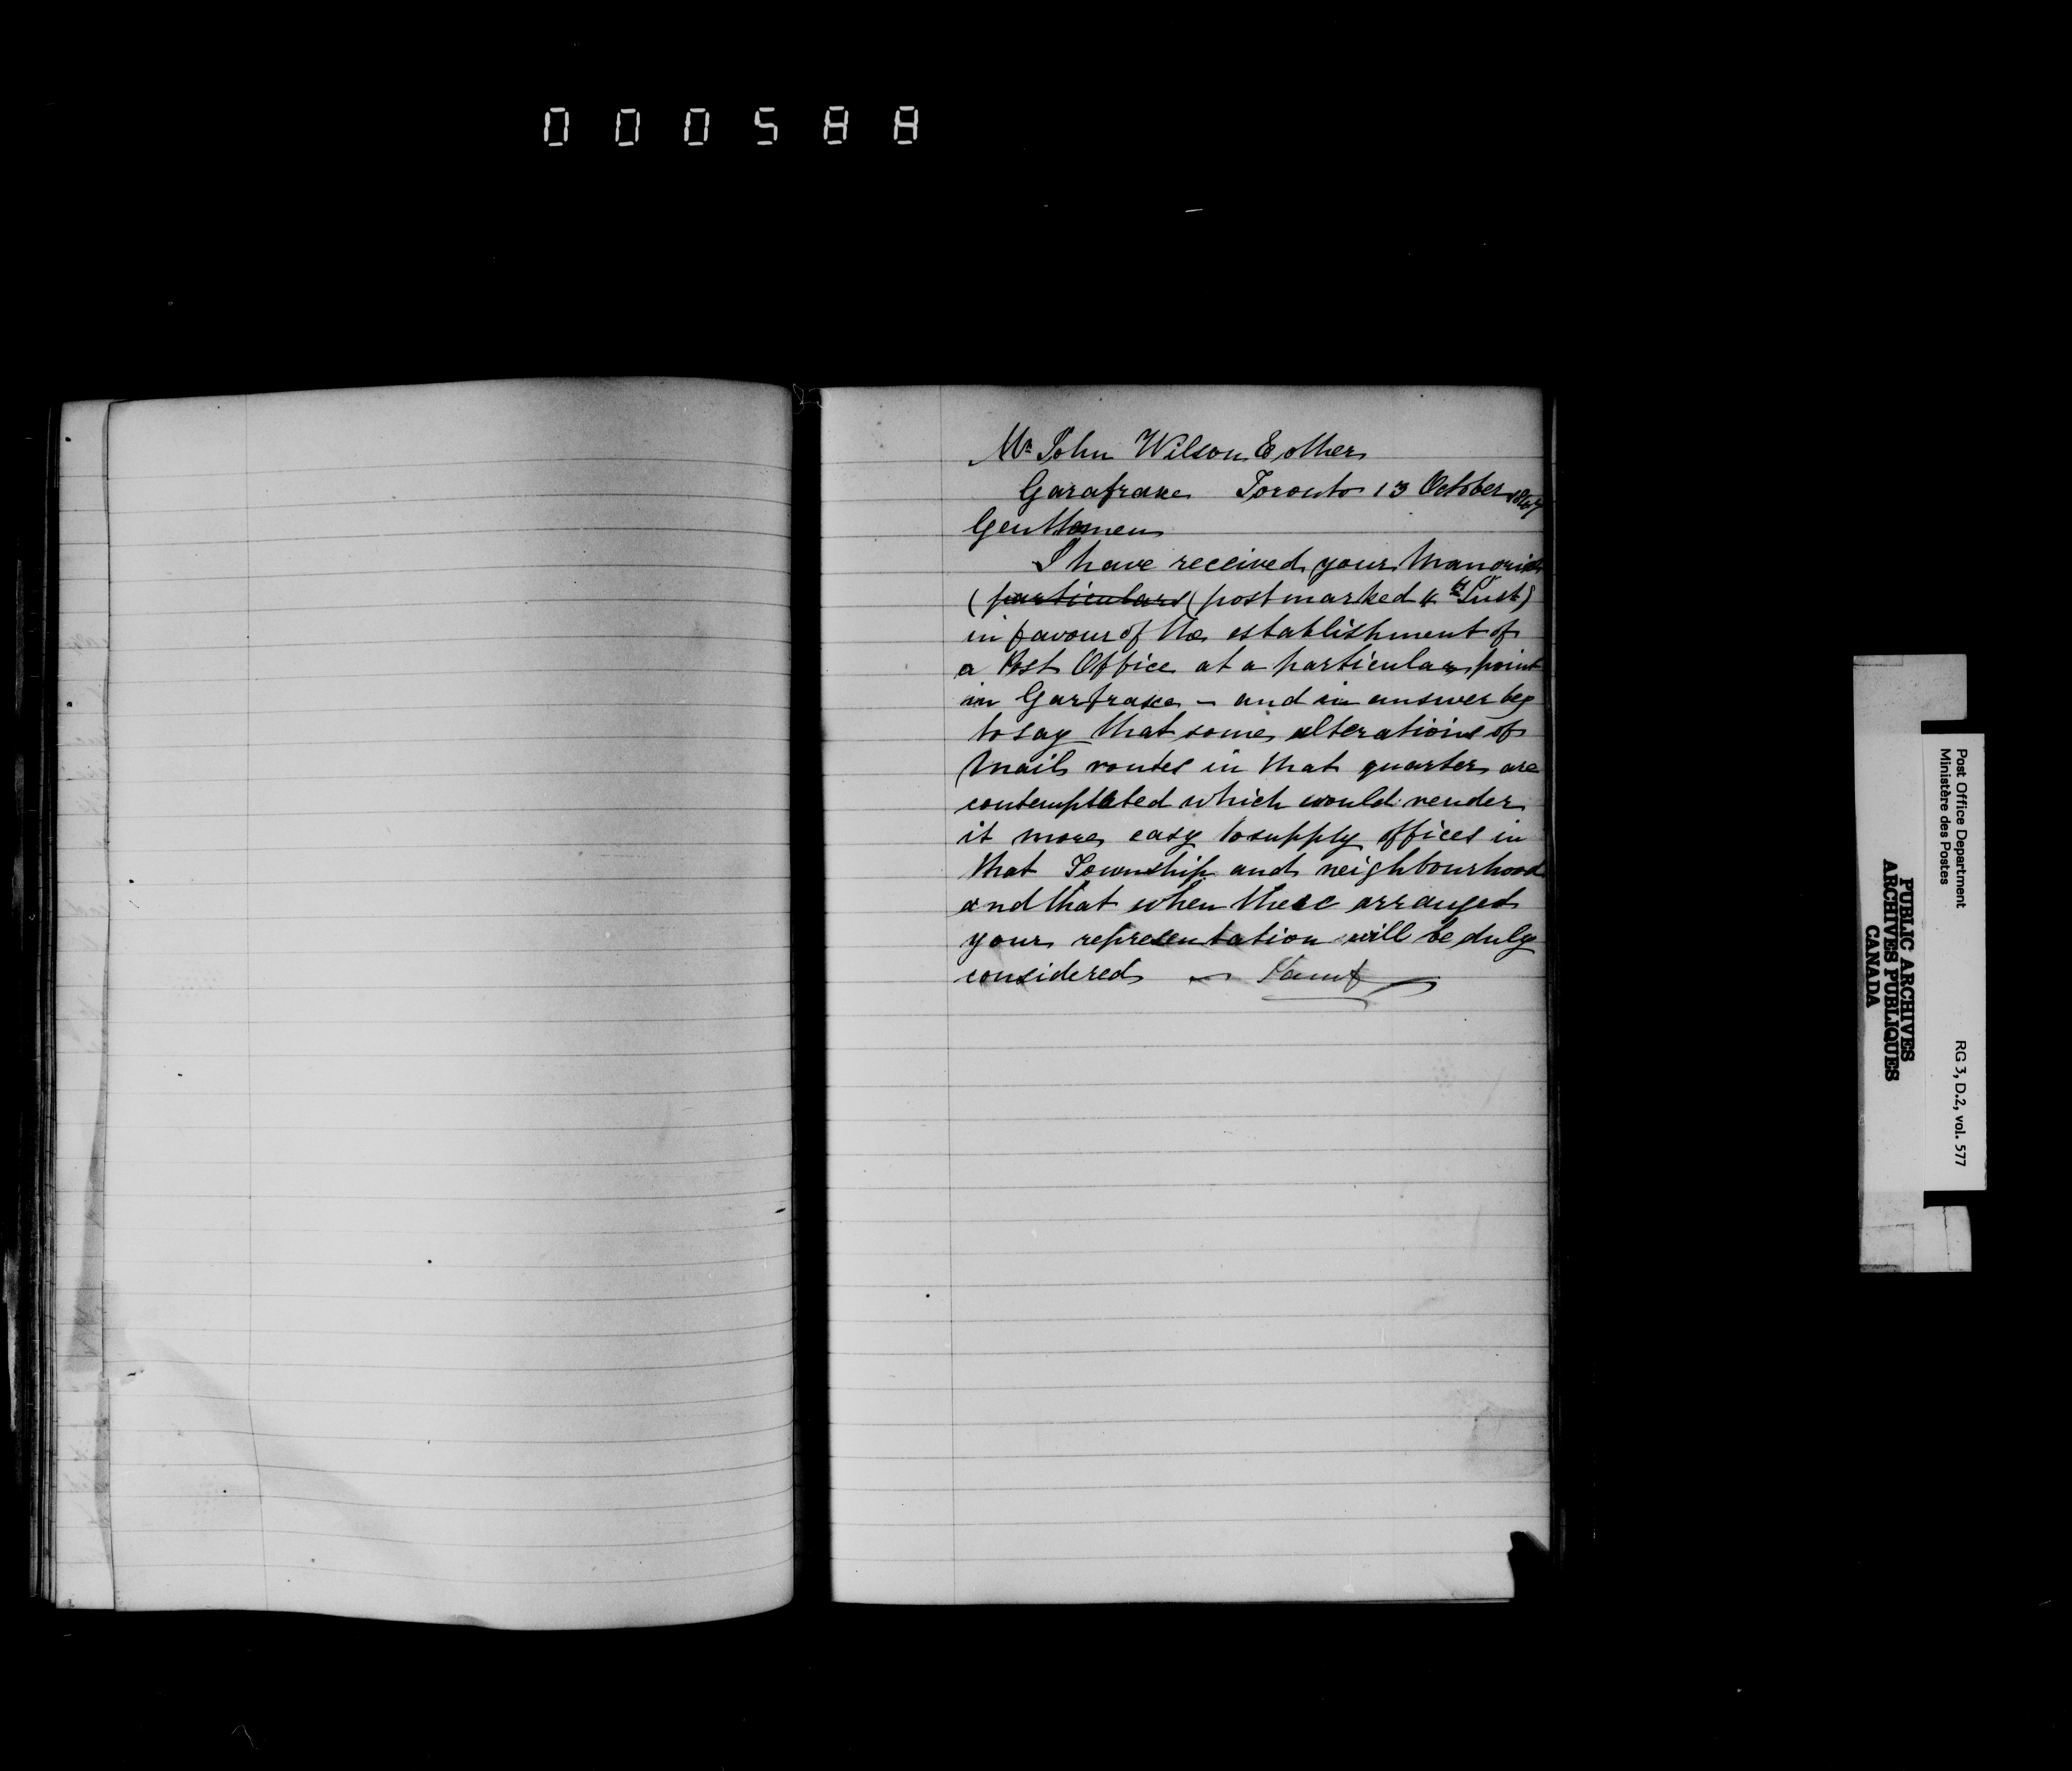 000588
Mr John Wilson & other
Garafraxa Toronto 13 October 1857
Gentlemen
I have received your Memorial
(particulars (post marked 4th Inst)
in favour of the establishment of
a Post Office at a particular point
in Garfraxa – and in answer beg
to say that some alterations of
Mail routes in that quarter are
contemplated which would render
it more easy to supply offices in
that Township and neighbourhood
and that when these arranged
your representation will be duly
considered –
Post Office Department RG 3, D.2, vol. 577
Ministère des Postes
PUBLIC ARCHIVES
ARCHIVES PUBLIQUES
CANADA